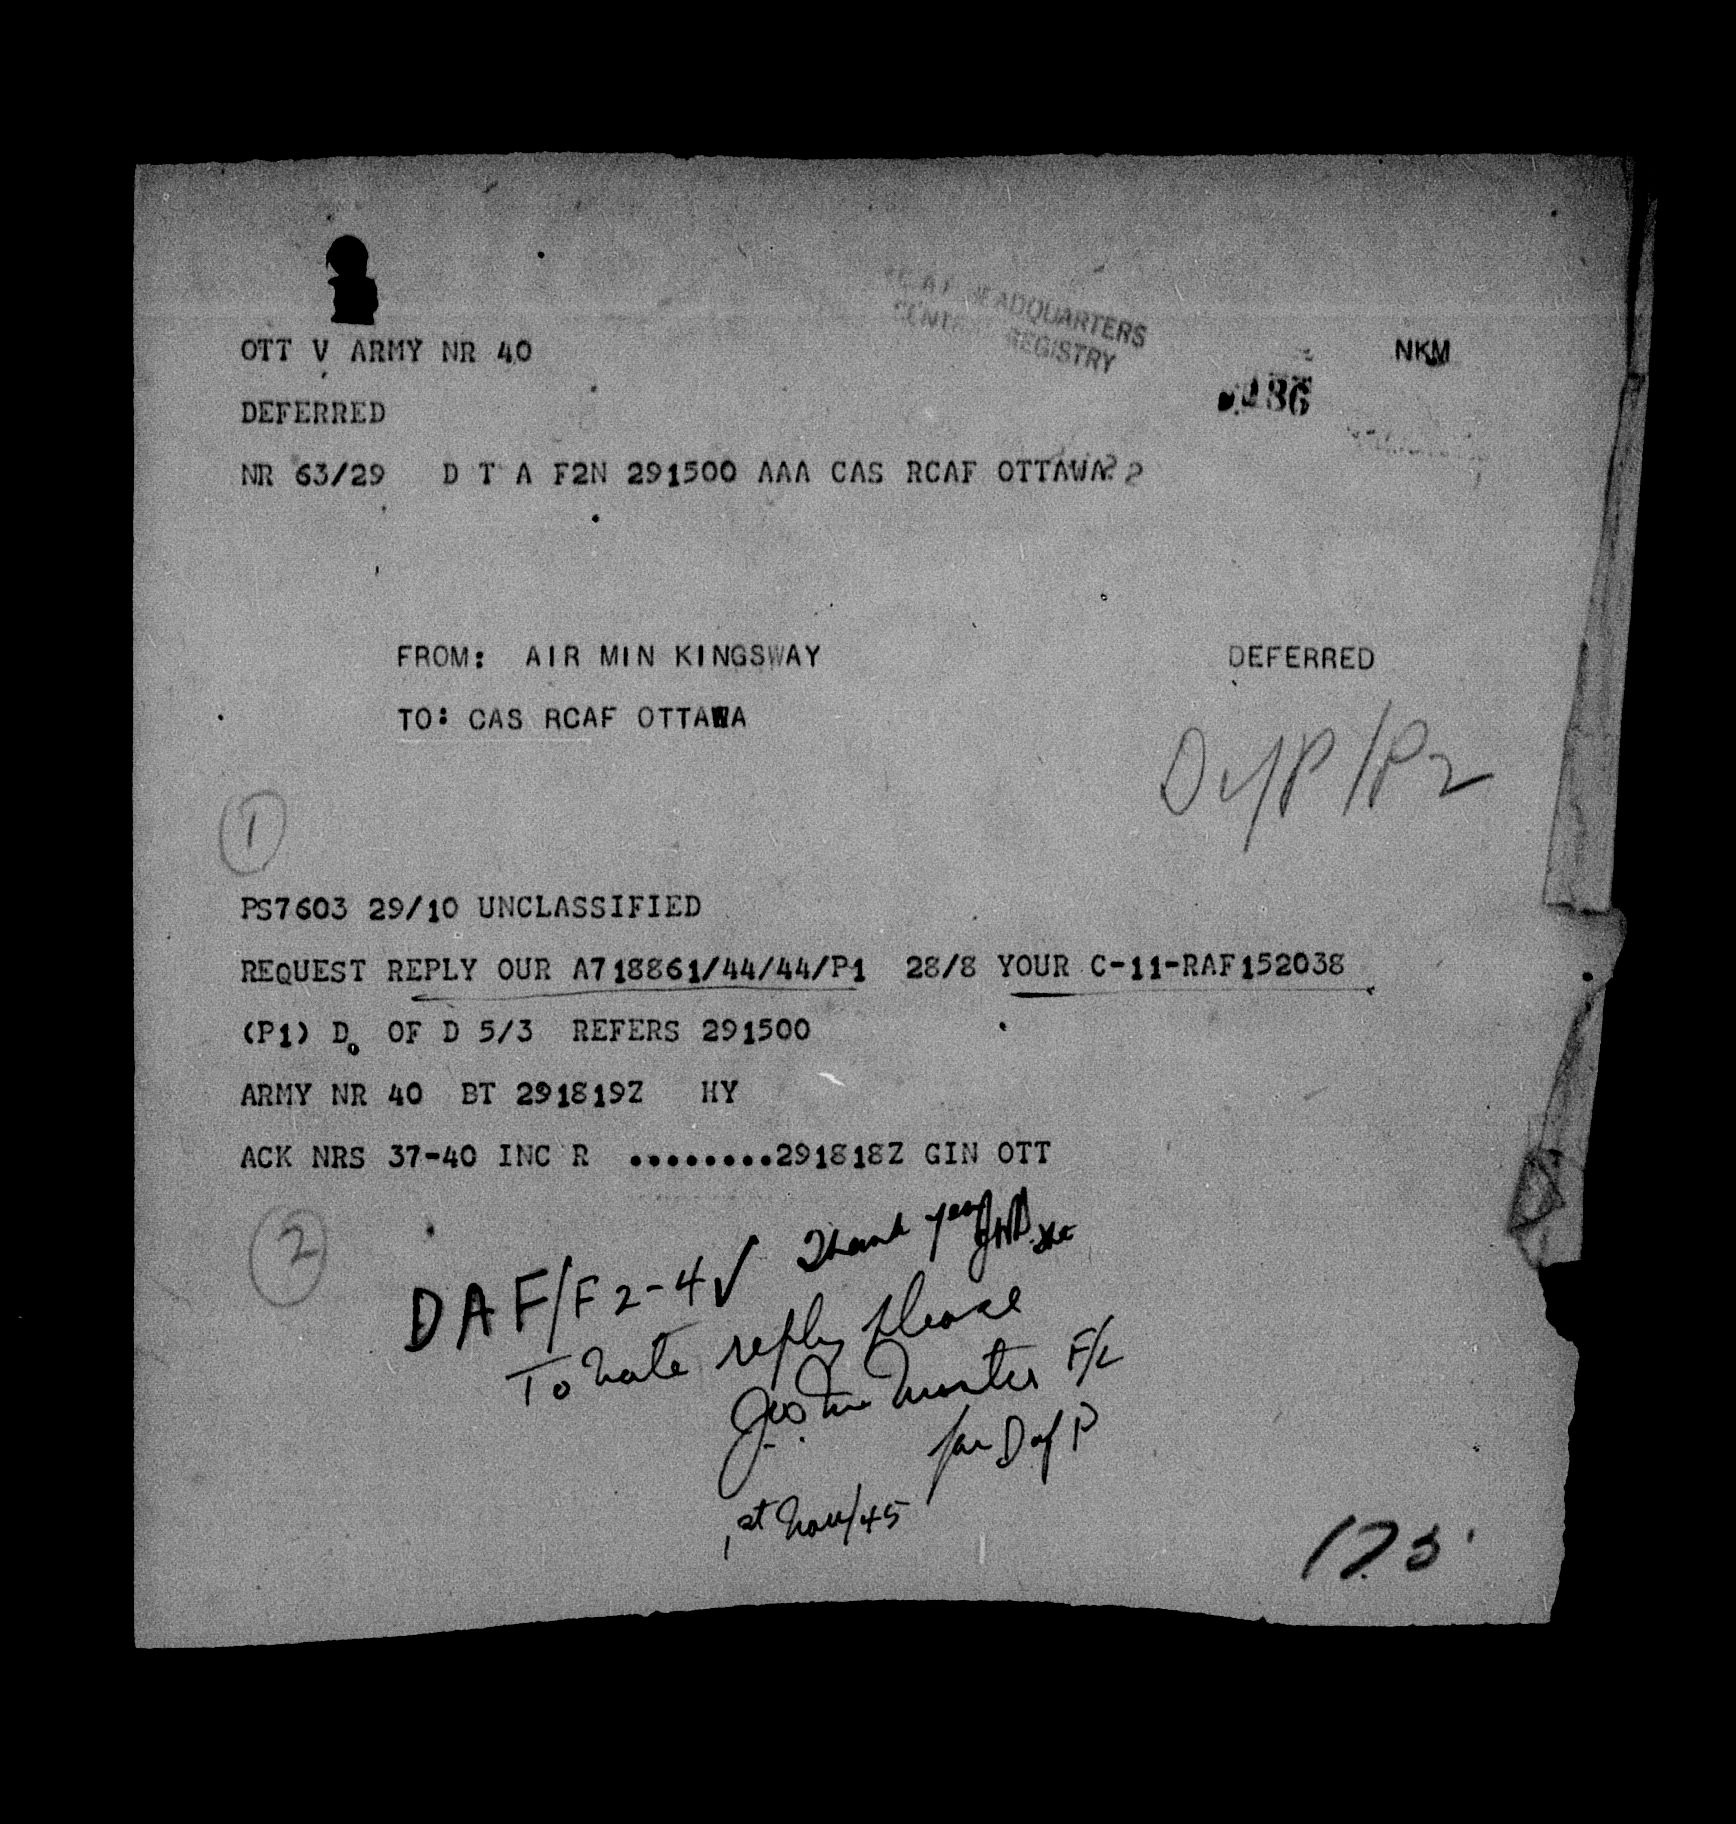 HEADQUARTERS
REGISTRY
OTT V ARMY NR 40
NKM
186
DEFERRED
NR 63/29 D T A F2N 291500 AAA CAS RCAF OTTAWA??
FROM: AIR MIN KINGSWAY
DEFERRED
TO: CAS RCAF OTTAWA
D of P/P2
1
PS7603 29/10 UNCLASSIFIED
REQUEST REPLY OUR A718861/44/44/P1 28/8 YOUR C-11-RAF152038
(P1) D. OF D 5/3 REFERS 291500
ARMY NR 40 BT 291819Z HY
ACK NRS 37-40 INC R ........291818Z GIN OTT
2
Thank you
DAF/F2-4 ✓
To note reply please
F/L
for D of P
1st Nov/45
173